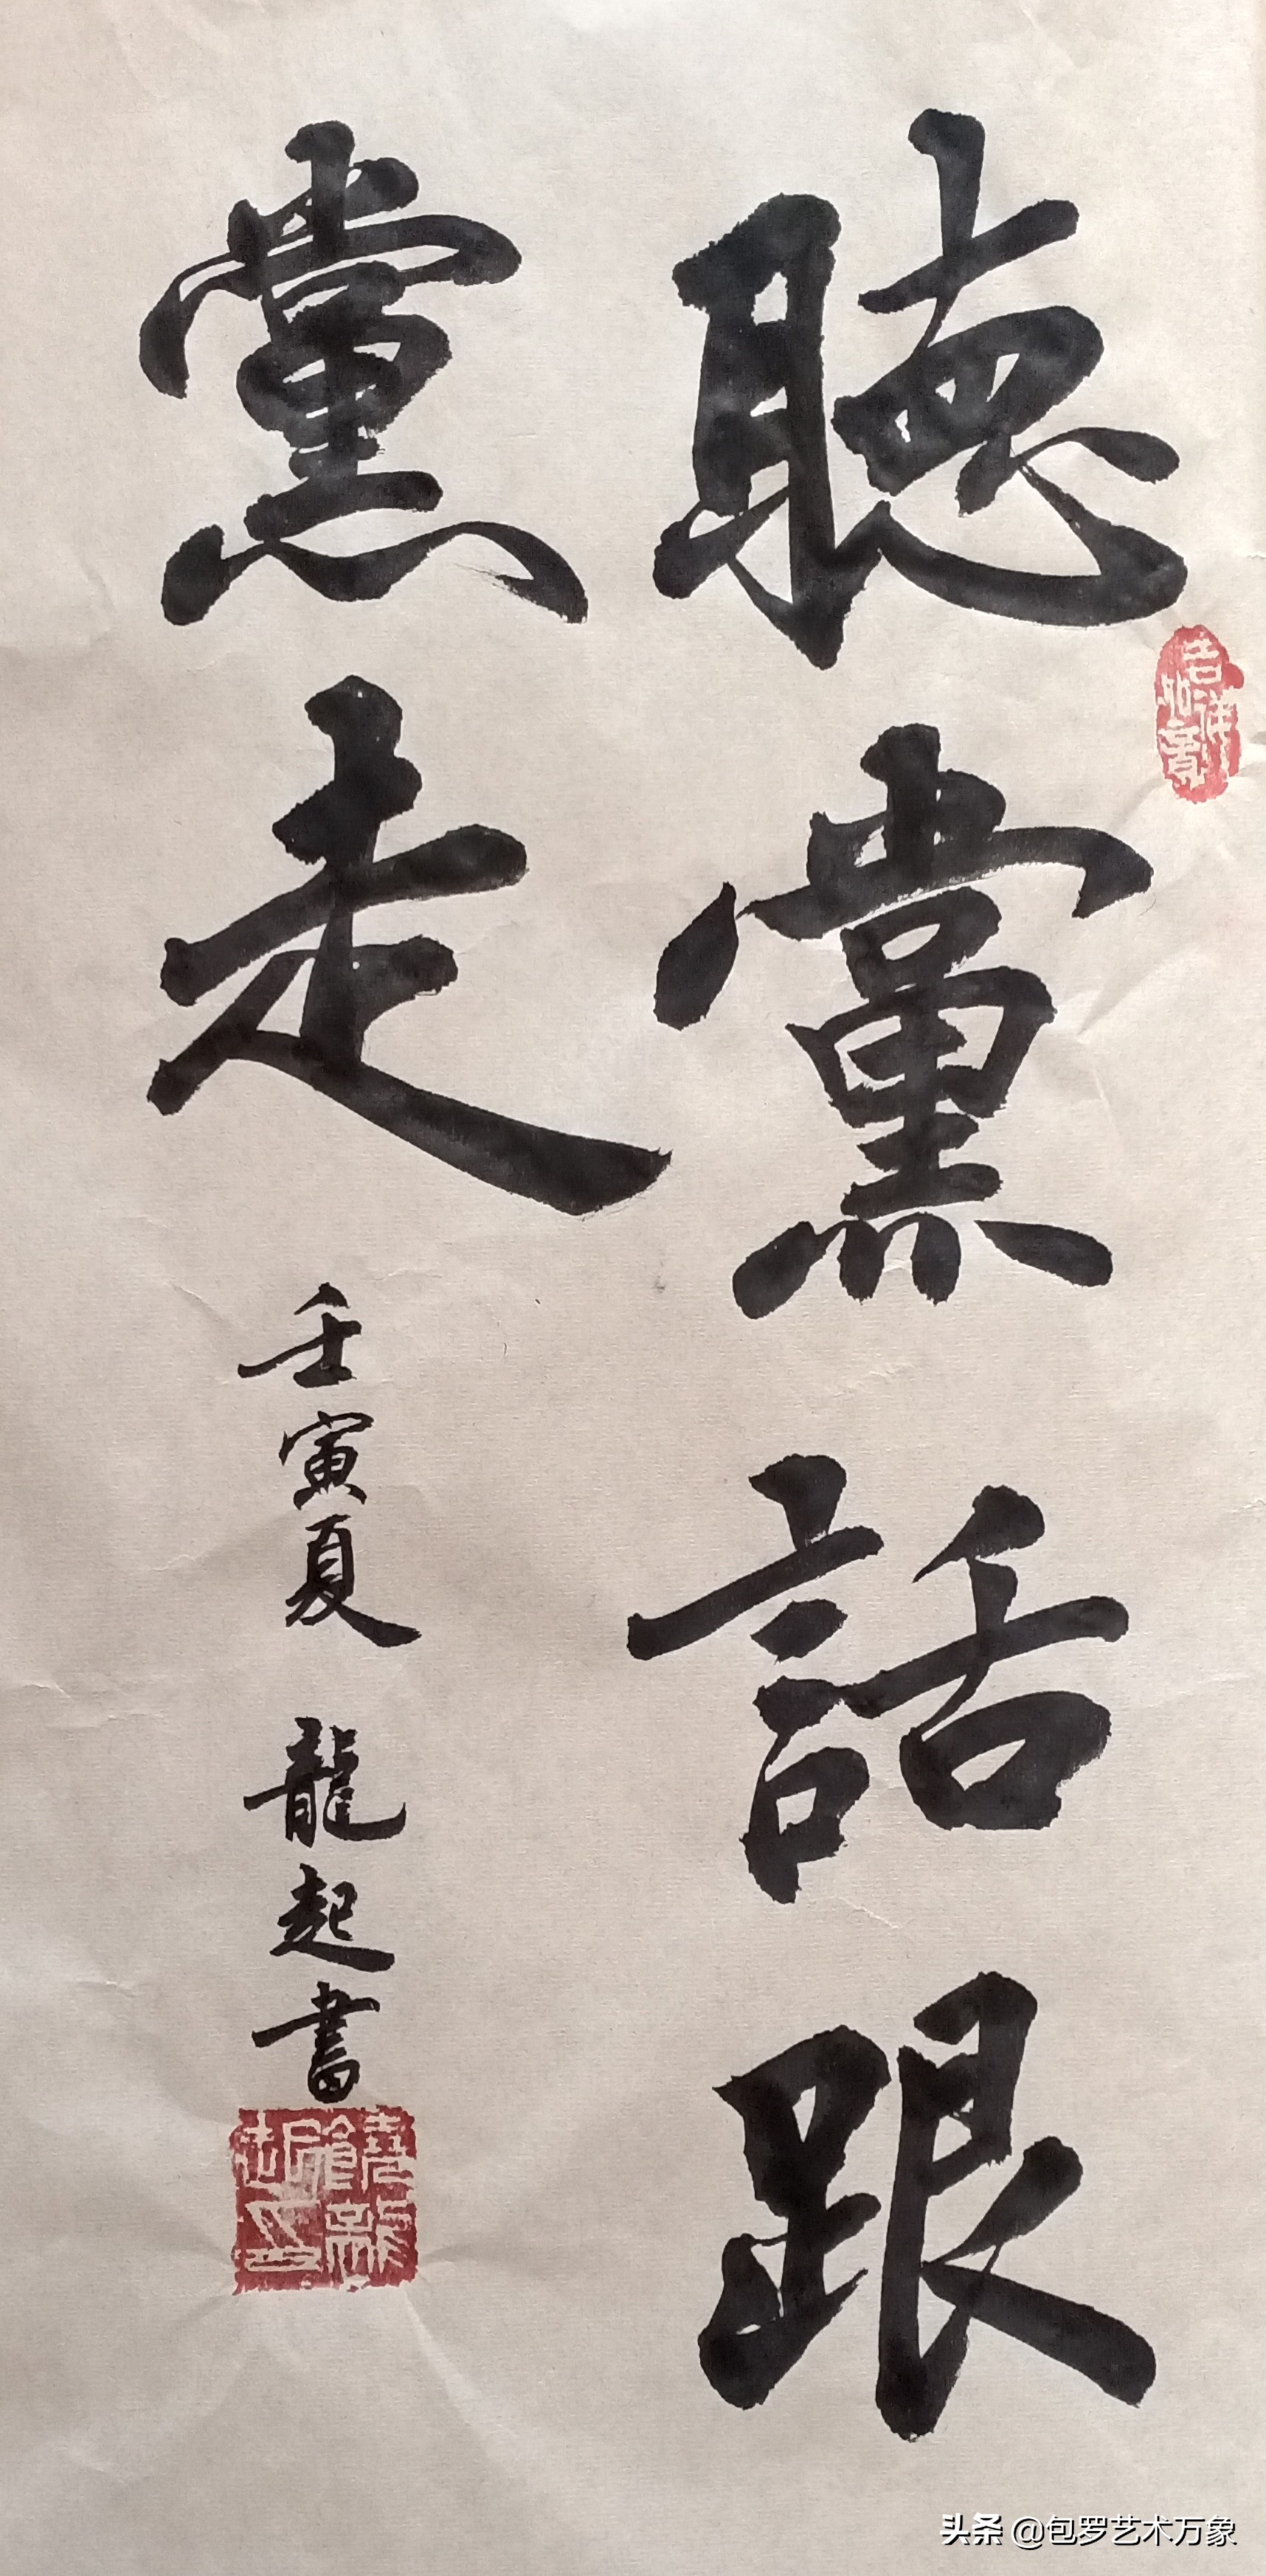 聽黨話跟
黨走
壬寅夏 龍起書
吉祥如意
头条 @包罗艺术万象